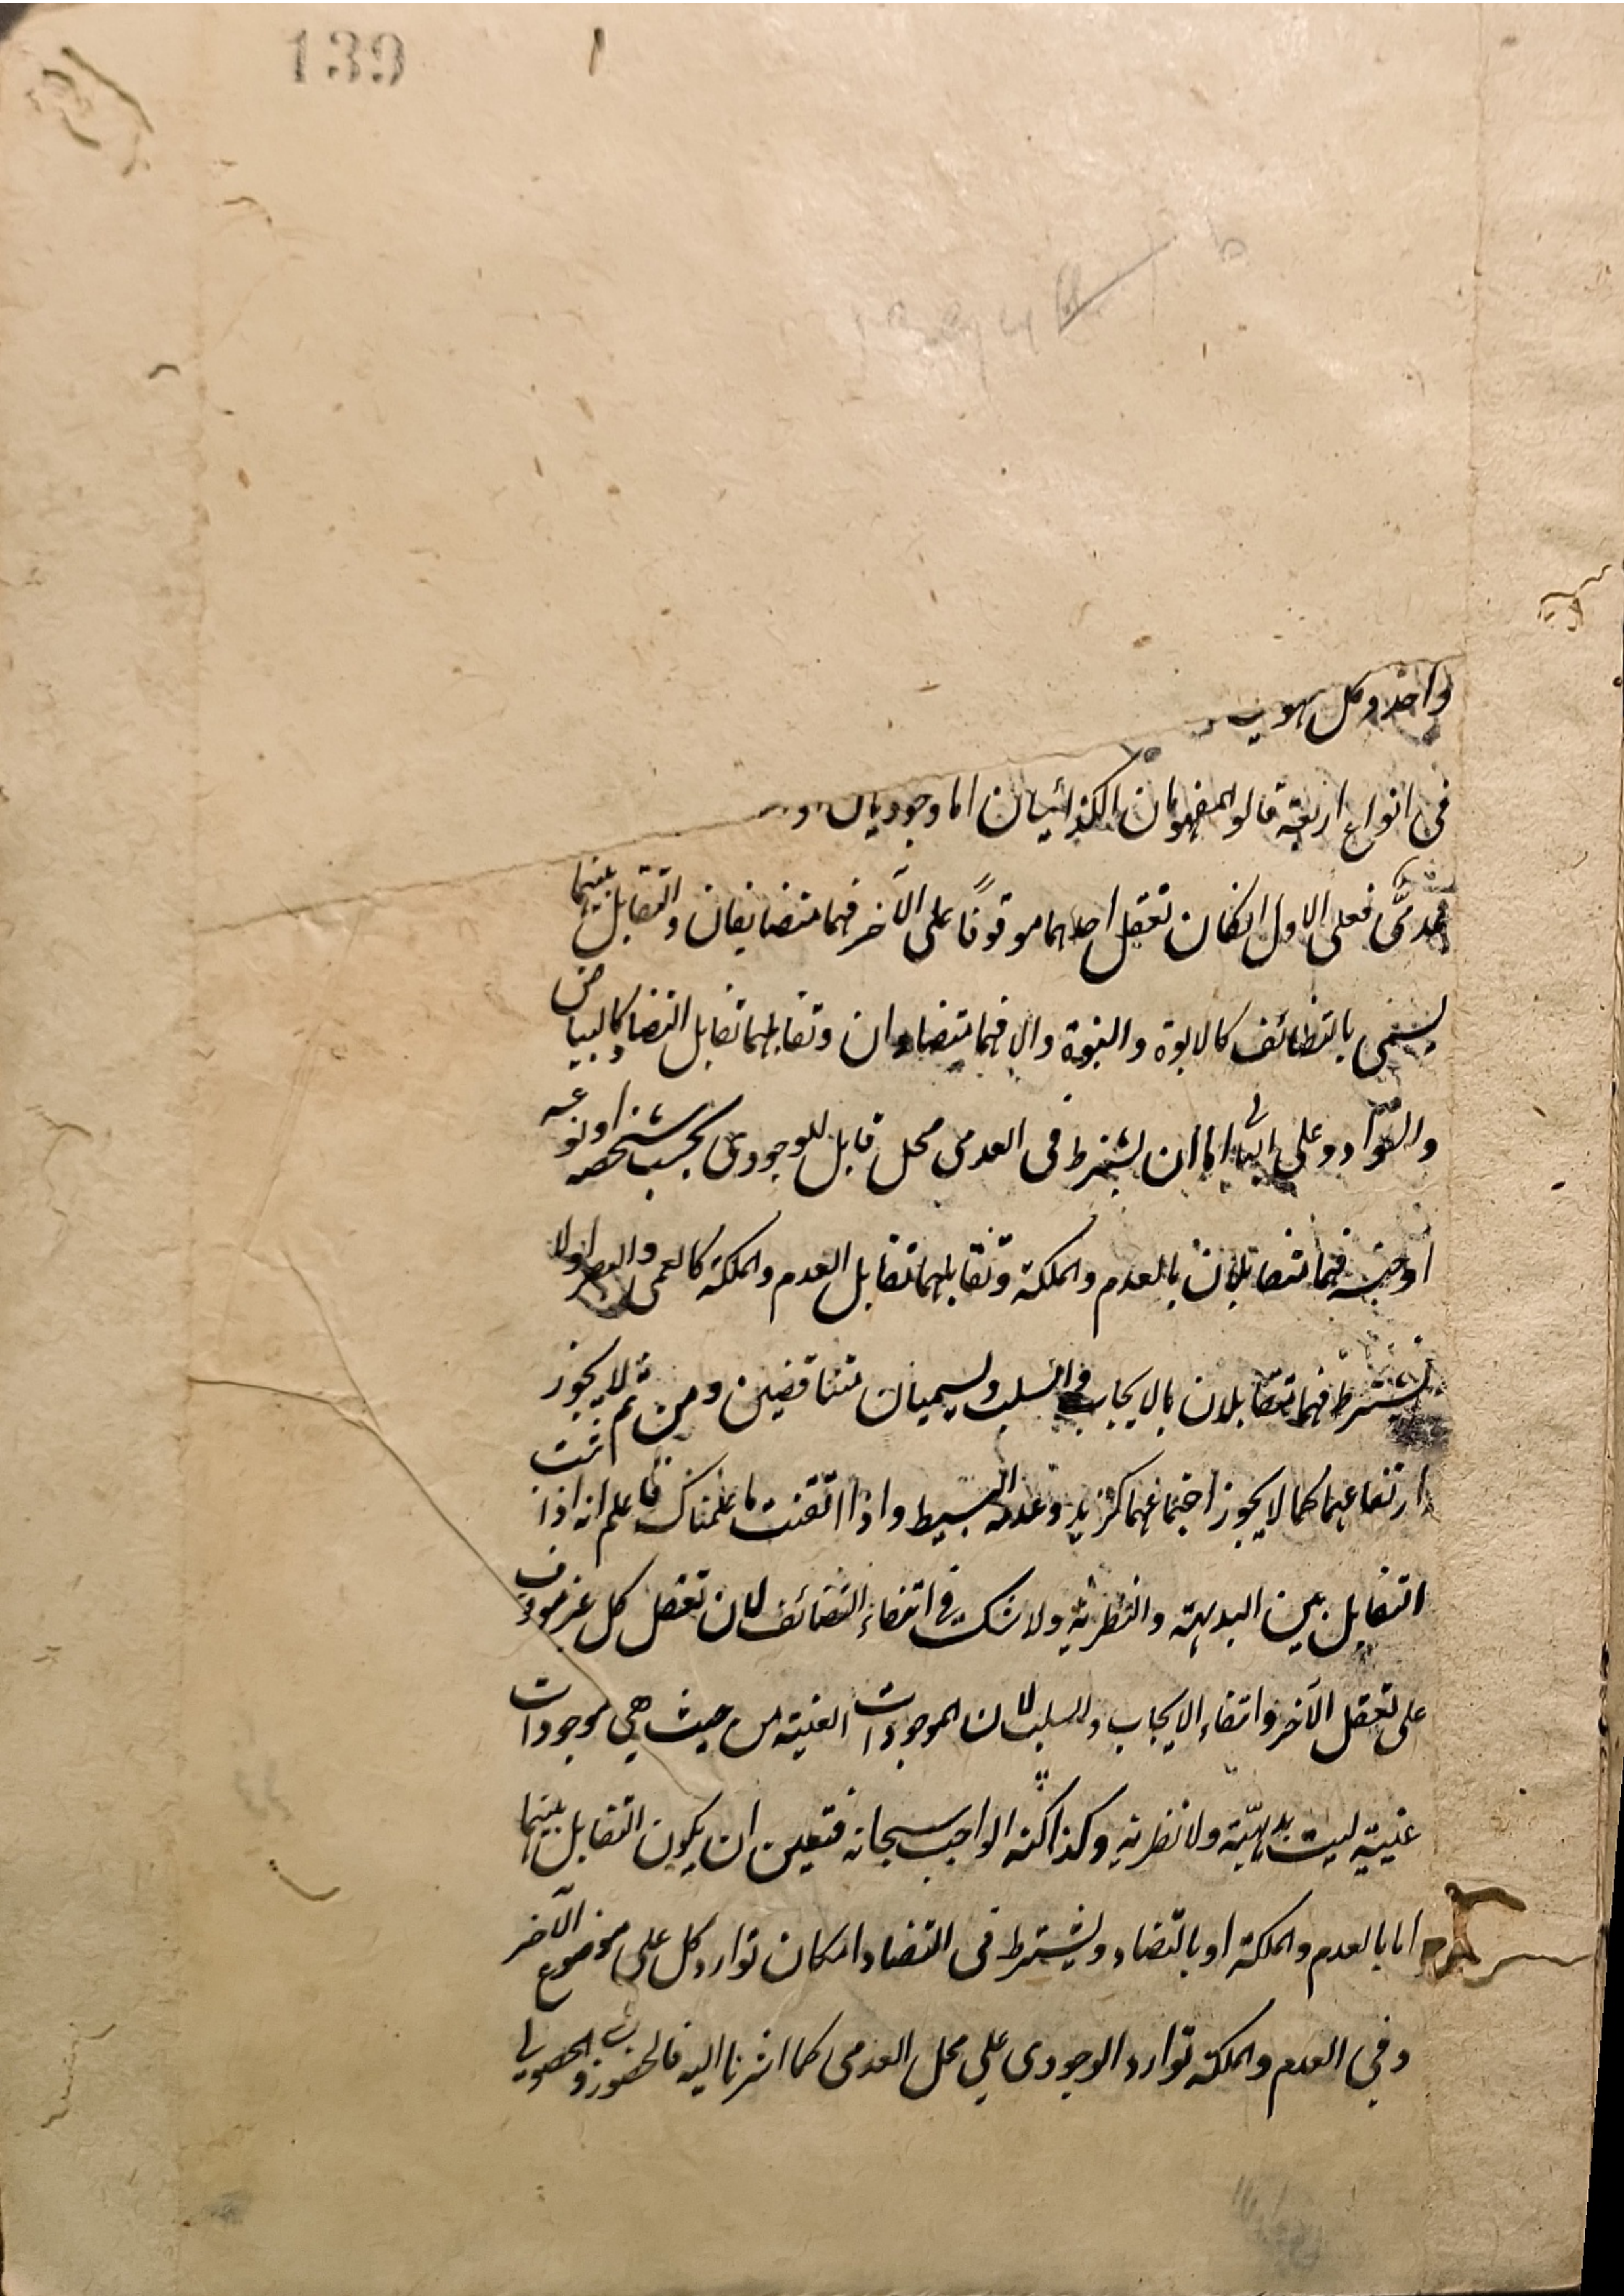 139
واحد وكل
فى انواع اربعة قالو المفهومان الكذائيان اما وجوديان او
عدمىّ فعلى الاول انكان تعقل احدهما موقوفًا على الآخر فهما متضايفان والتقابل بينهما
يسمى بالتضائف كالابوة والبنوة والا فهما متضادان وتقابلهما تقابل التضاد كالبياض
والسواد وعلى الثانى اما ان يشترط فى العدمى محل قابل للوجودى بحسب شخصه او نوعه
او جنسه فهما متقابلان بالعدم والملكة وتقابلهما تقابل العدم والملكة كالعمى والبصر اولا
يشترط فهما متقابلان بالايجاب والسلب ويسميان متناقضين ومن ثم لا يجوز
ارتفاعهما كما لا يجوز اجتماعهما كزيد وعدمه البسيط واذا اتقنت ما علمناك فاعلم انه اذا ثبت
التقابل بين البديهية والنظرية ولا شك فى انتفاء التضائف لان تعقل كل غير موقوف
على تعقل الآخر وانتفاء الايجاب والسلب لان الموجودات العينية من حيث هى موجودات
عينية ليست بديهيّة ولا نظرية وكذا كنه الواجب سبحانه فتعين ان يكون التقابل بينهما
اما بالعدم والملكة او بالتضاد ويشترط فى التضاد امكان توارد كل على موضوع الآخر
وفى العدم والملكة توارد الوجودى على محل العدمى كما اشرنا اليه فالحضورى والحصولى